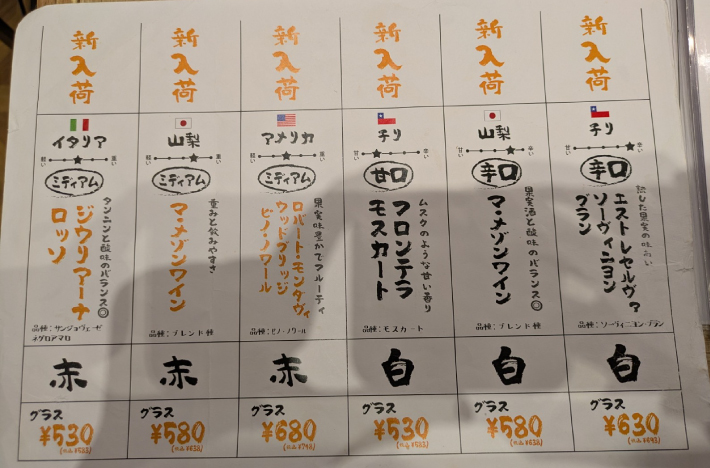 新入荷
イタリア
軽い 重い
ミディアム
タンニンと酸味のバランス◎
ジウリアーナ
ロッソ
品種:サンジョヴェーゼ
ネグロアマロ
赤
グラス
¥530
新入荷
山梨
軽い 重い
ミディアム
重みと飲みやすさ
マ・メゾンワイン
品種:ブレンド種
赤
グラス
¥580
新入荷
アメリカ
軽い 重い
ミディアム
果実味豊かでフルーティ
ロバート・モンダヴィ
ウッドブリッジ
ピノ・ノワール
品種:ピノ・ノワール
赤
グラス
¥680
新入荷
チリ
甘い 辛い
甘口
ムスクのような甘い香り
フロンテラ
モスカート
品種:モスカート
白
グラス
¥530
新入荷
山梨
甘い 辛い
辛口
果実酒と酸味のバランス◎
マ・メゾンワイン
品種:ブレンド種
白
グラス
¥580
新入荷
チリ
甘い 辛い
辛口
熟した果実の味わい
エストレセルヴァ
ソーヴィニヨン
ブラン
品種:ソーヴィニヨン・ブラン
白
グラス
¥630